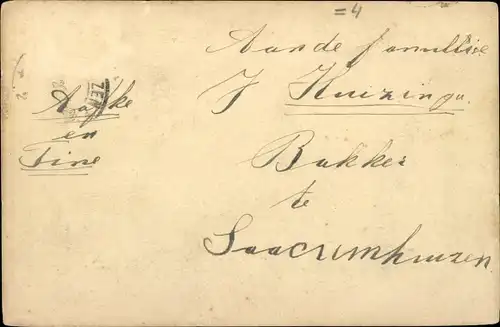 = 4
Aan de familie
J Kuizinga.
Bakker
te
Saacxumhuizen
Aafke
en
Tine
ZEN